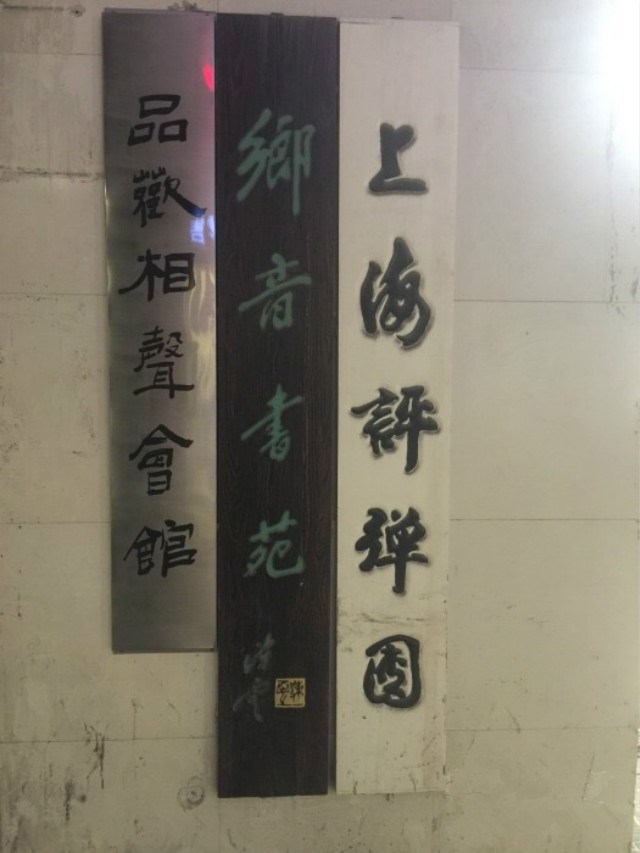 上海評弹團
鄉音書苑
陳雲
品歡相聲會館